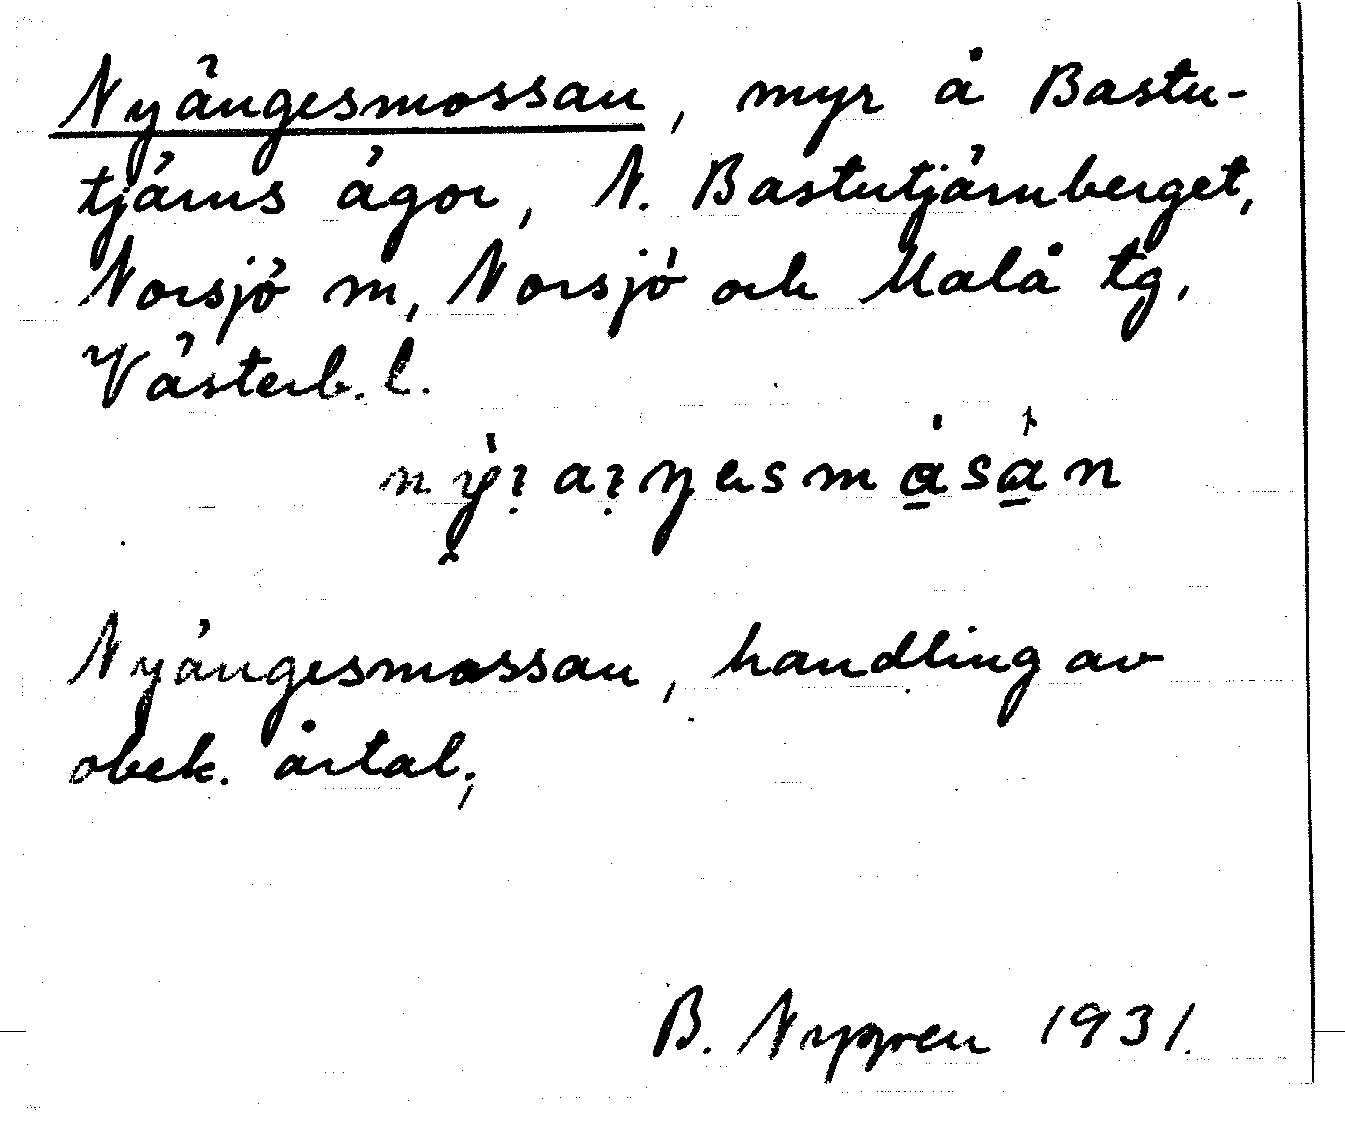 Nyängesmossan, myr å Bastu-
tjärns ägor, N. Bastutjärnberget,
Norsjö m, Norsjö och Malå tg,
Västerb. l.
Nyängesmossan, handling av
obek. årtal;
B. Nygren 1931.